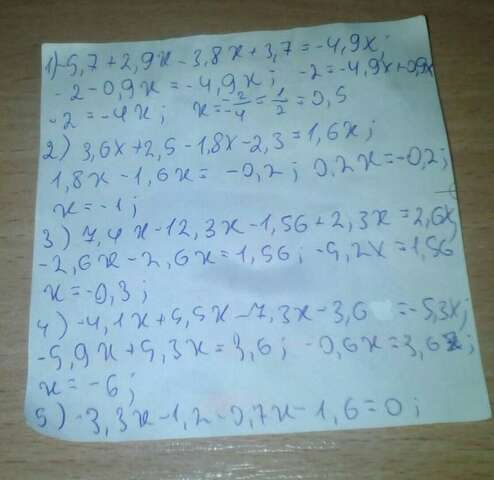 1) -5,7+2,9x-3,8x+3,7=-4,9x;
-2-0,9x=-4,9x; -2=-4,9x+0,9x
-2=-4x; x=-2/-4=1/2=0,5
2) 3,6x+2,5-1,8x-2,3=1,6x;
1,8x-1,6x=-0,2; 0,2x=-0,2;
x=-1;
3) 7,4x-12,3x-1,56+2,3x=2,6x;
-2,6x-2,6x=1,56; -5,2x=1,56
x=-0,3;
4) -4,1x+5,5x-7,3x-3,6=-5,3x;
-5,9x+5,3x=3,6; -0,6x=3,6;
x=-6;
5) -3,3x-1,2-0,7x-1,6=0;